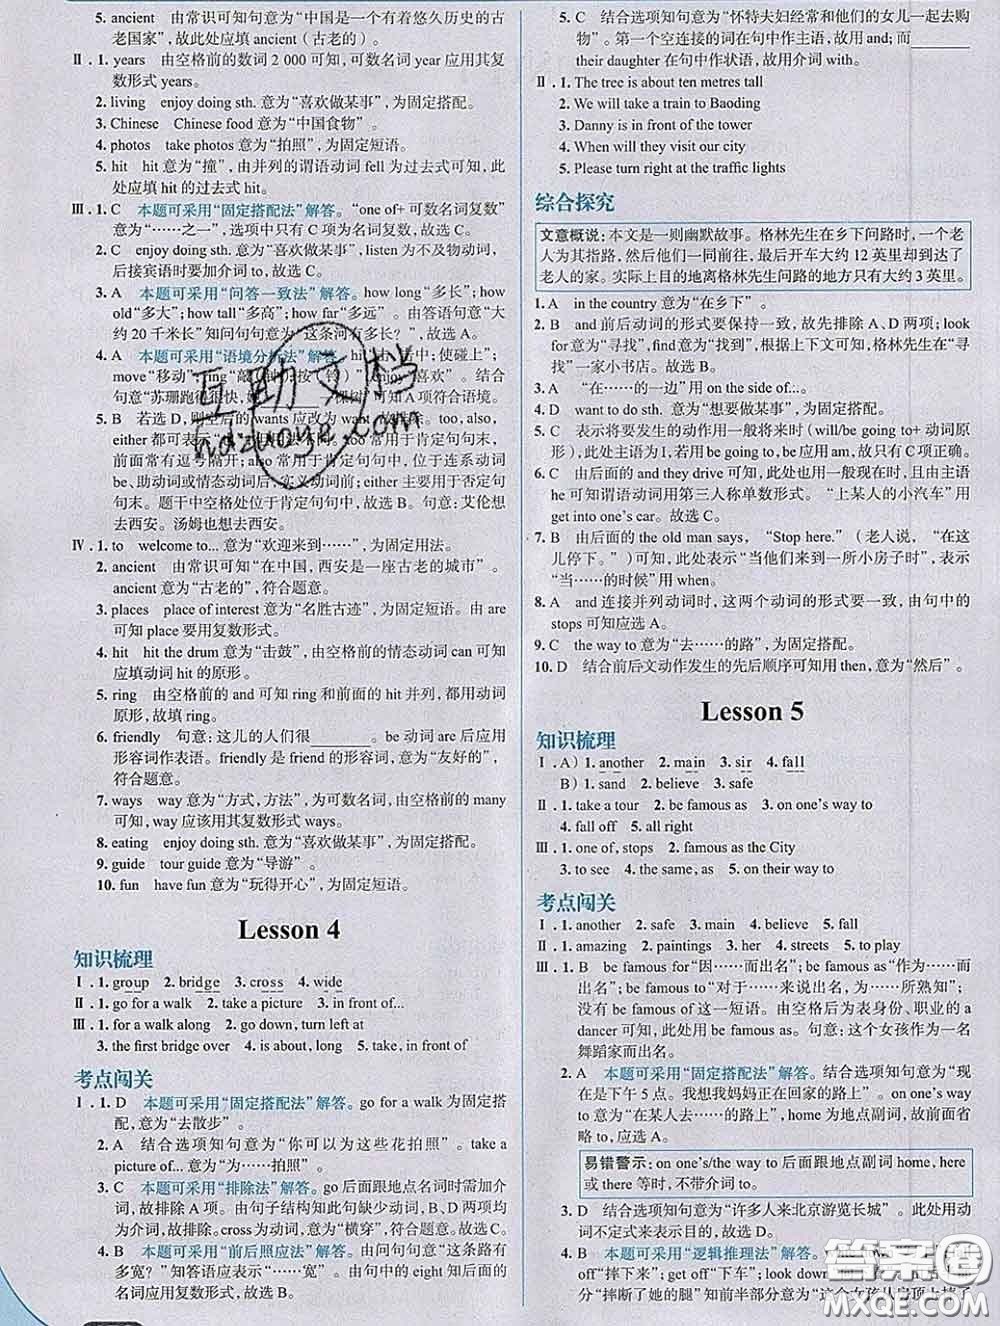 5. ancient 由常识可知句意为“中国是一个有着悠久历史的古
老国家”,故此处应填 ancient(古老的)。
Ⅱ. 1. years 由空格前的数词 2 000 可知,可数名词 year 应用其复
数形式 years。
2. living enjoy doing sth. 意为“喜欢做某事”,为固定搭配。
3. Chinese Chinese food 意为“中国食物”。
4. photos take photos 意为“拍照”,为固定短语。
5. hit hit 意为“撞”,由并列的谓语动词 fell 为过去式可知,此
处应填 hit 的过去式 hit。
Ⅲ. 1. C 本题可采用“固定搭配法”解答。“one of+ 可数名词复数”
意为“……之一”,选项中只有 C 项为名词复数,故选 C。
2. C enjoy doing sth. 意为“喜欢做某事”,listen 为不及物动词,
后接宾语时要加介词 to,故选 C。
3. A 本题可采用“问答一致法”解答。how long“多长”;how
old“多大”;how tall“多高”;how far“多远”。由答语句意“大
约 20 千米长”知问句句意为“这条河有多长?”,故选 A。
4. A 本题可采用“语境分析法”解答。hit“击中;使碰上”;
move“移动”;ring“敲(钟);按(铃)”;enjoy“喜欢”。结合
句意“苏珊跑得很快,她 棵树”可知 A 项符合语境。
5. B 若选 D,则空后的 wants 应改为 want,故排除。too, also,
either 都可表示
前面常有逗号隔开;also 常用于肯定句句中,位于连系动词
be、助动词或情态动词后,实义动词前;either 主要用于否定句
句末。题干中空格处位于肯定句句中,故选 B。句意:艾伦想
去西安。汤姆也想去西安。
Ⅳ. 1. to welcome to... 意为“欢迎来到……”,为固定用法。
2. ancient 由常识可知“在中国,西安是一座古老的城市”。
ancient 意为“古老的”,符合题意。
3. places place of interest 意为“名胜古迹”,为固定短语。由 are
可知 place 要用复数形式。
4. hit hit the drum 意为“击鼓”,由空格前的情态动词 can 可知
应填动词 hit 的原形。
5. ring 由空格前的 and 可知 ring 和前面的 hit 并列,都用动词
原形,故填 ring。
6. friendly 句意:这儿的人们很________。be 动词 are 后应用
形容词作表语。friendly 是 friend 的形容词,意为“友好的”,
符合题意。
7. ways way 意为“方式,方法”,为可数名词,由空格前的 many
可知,way 应该用其复数形式 ways。
8. eating enjoy doing sth. 意为“喜欢做某事”,为固定搭配。
9. guide tour guide 意为“导游”。
10. fun have fun 意为“玩得开心”,为固定短语。
Lesson 4
知识梳理
Ⅰ. 1. group 2. bridge 3. cross 4. wide
Ⅱ. 1. go for a walk 2. take a picture 3. in front of...
Ⅲ. 1. for a walk along 2. go down, turn left at
3. the first bridge over 4. is about, long 5. take, in front of
考点闯关
Ⅰ. 1. D 本题可采用“固定搭配法”解答。go for a walk 为固定搭
配,意为“去散步”。
2. A 结合选项知句意为“你可以为这些花拍照”。take a
picture of... 意为“为……拍照”。
3. C 本题可采用“排除法”解答。go 后面跟地点名词时需加介
词,故排除 A 项。由句子结构知此句缺少动词,B、D 两项均
为介词,故排除。cross 为动词,意为“横穿”,符合题意。故选 C。
4. B 本题可采用“前后照应法”解答。由问句句意“这条路有
多宽?”知答语应表示“……宽”。由句中的 eight 知后面的
名词应用复数形式,故选 B。
5. C 结合选项知句意为“怀特夫妇经常和他们的女儿一起去购
物”。第一个空连接的词在句中作主语,故用 and;而________
their daughter 在句中作状语,故用介词 with。
Ⅱ. 1. The tree is about ten metres tall
2. We will take a train to Baoding
3. Danny is in front of the tower
4. When will they visit our city
5. Please turn right at the traffic lights
综合探究
文意概说:本文是一则幽默故事。格林先生在乡下问路时,一个老
人为其指路,然后他们一同前往,最后开车大约 12 英里却到达了
老人的家。实际上目的地离格林先生问路的地方只有大约 3 英里。
1. A in the country 意为“在乡下”。
2. B and 前后动词的形式要保持一致,故先排除 A、D 两项;look
for 意为“寻找”,find 意为“找到”,根据上下文可知,格林先生在“寻
找”一家小书店。故选 B。
3. A “在……的一边”用 on the side of...。
4. D want to do sth. 意为“想要做某事”,为固定搭配。
5. C 表示将要发生的动作用一般将来时(will/be going to+动词原
形)。此处主语为 I,若用 be going to,be 应用 am,故只有 C 项正确。
6. C 由后面的 and they drive 可知,此处也用一般现在时,且由主语
he 可知谓语动词用第三人称单数形式。“上某人的小汽车”用
get into one's car。故选 C。
7. B 由后面的 the old man says, “Stop here.”(老人说,“在这
儿停下。”)可知,此处表示“当他们来到一所小房子时”,表示
“当……的时候”用 when。
8. A and 连接并列动词时,这两个动词的形式要一致,由句中的
stops 可知应选 A。
9. C the way to 意为“去……的路”,为固定搭配。
10. D 结合前后文动作发生的先后顺序可知用 then,意为“然后”。
Lesson 5
知识梳理
Ⅰ. A) 1. another 2. main 3. sir 4. fall
B) 1. sand 2. believe 3. safe
Ⅱ. 1. take a tour 2. be famous as 3. on one's way to
4. fall off 5. all right
Ⅲ. 1. one of, stops 2. famous as the City
3. to see 4. the same, as 5. on their way to
考点闯关
Ⅰ. 1. another 2. safe 3. main 4. believe 5. fall
Ⅱ. 1. amazing 2. paintings 3. her 4. streets 5. to play
Ⅲ. 1. B be famous for“因……而出名”;be famous as“作为……而
出名”;be famous to“对于……来说出名,为……所熟知”;
没有 be famous of 这一短语。由空格后为表身份、职业的 a
dancer 可知,此处用 be famous as。句意:这个女孩作为一名
舞蹈家而出名。
2. A 本题可采用“固定搭配法”解答。结合选项知句意为“现
在是下午 5 点。我想我妈妈正在回家的路上”。on one's way
to 意为“在某人去……的路上”,home 为地点副词,故前面省
略 to,应选 A。
易错警示:on one's/the way to 后面跟地点副词 home, here
或 there 等时,不带介词 to。
3. D 结合选项知句意为“许多人来北京游览长城”。此处用动
词不定式来表示目的,故选 D。
4. B 本题可采用“逻辑推理法”解答。
off“摔下来”;get off“下车”;look down
分“摔断了她的腿”知前半部分意为“这个女孩从房顶上摔了
互助文档
hdzuoye.com
答案圈
MXQE.COM